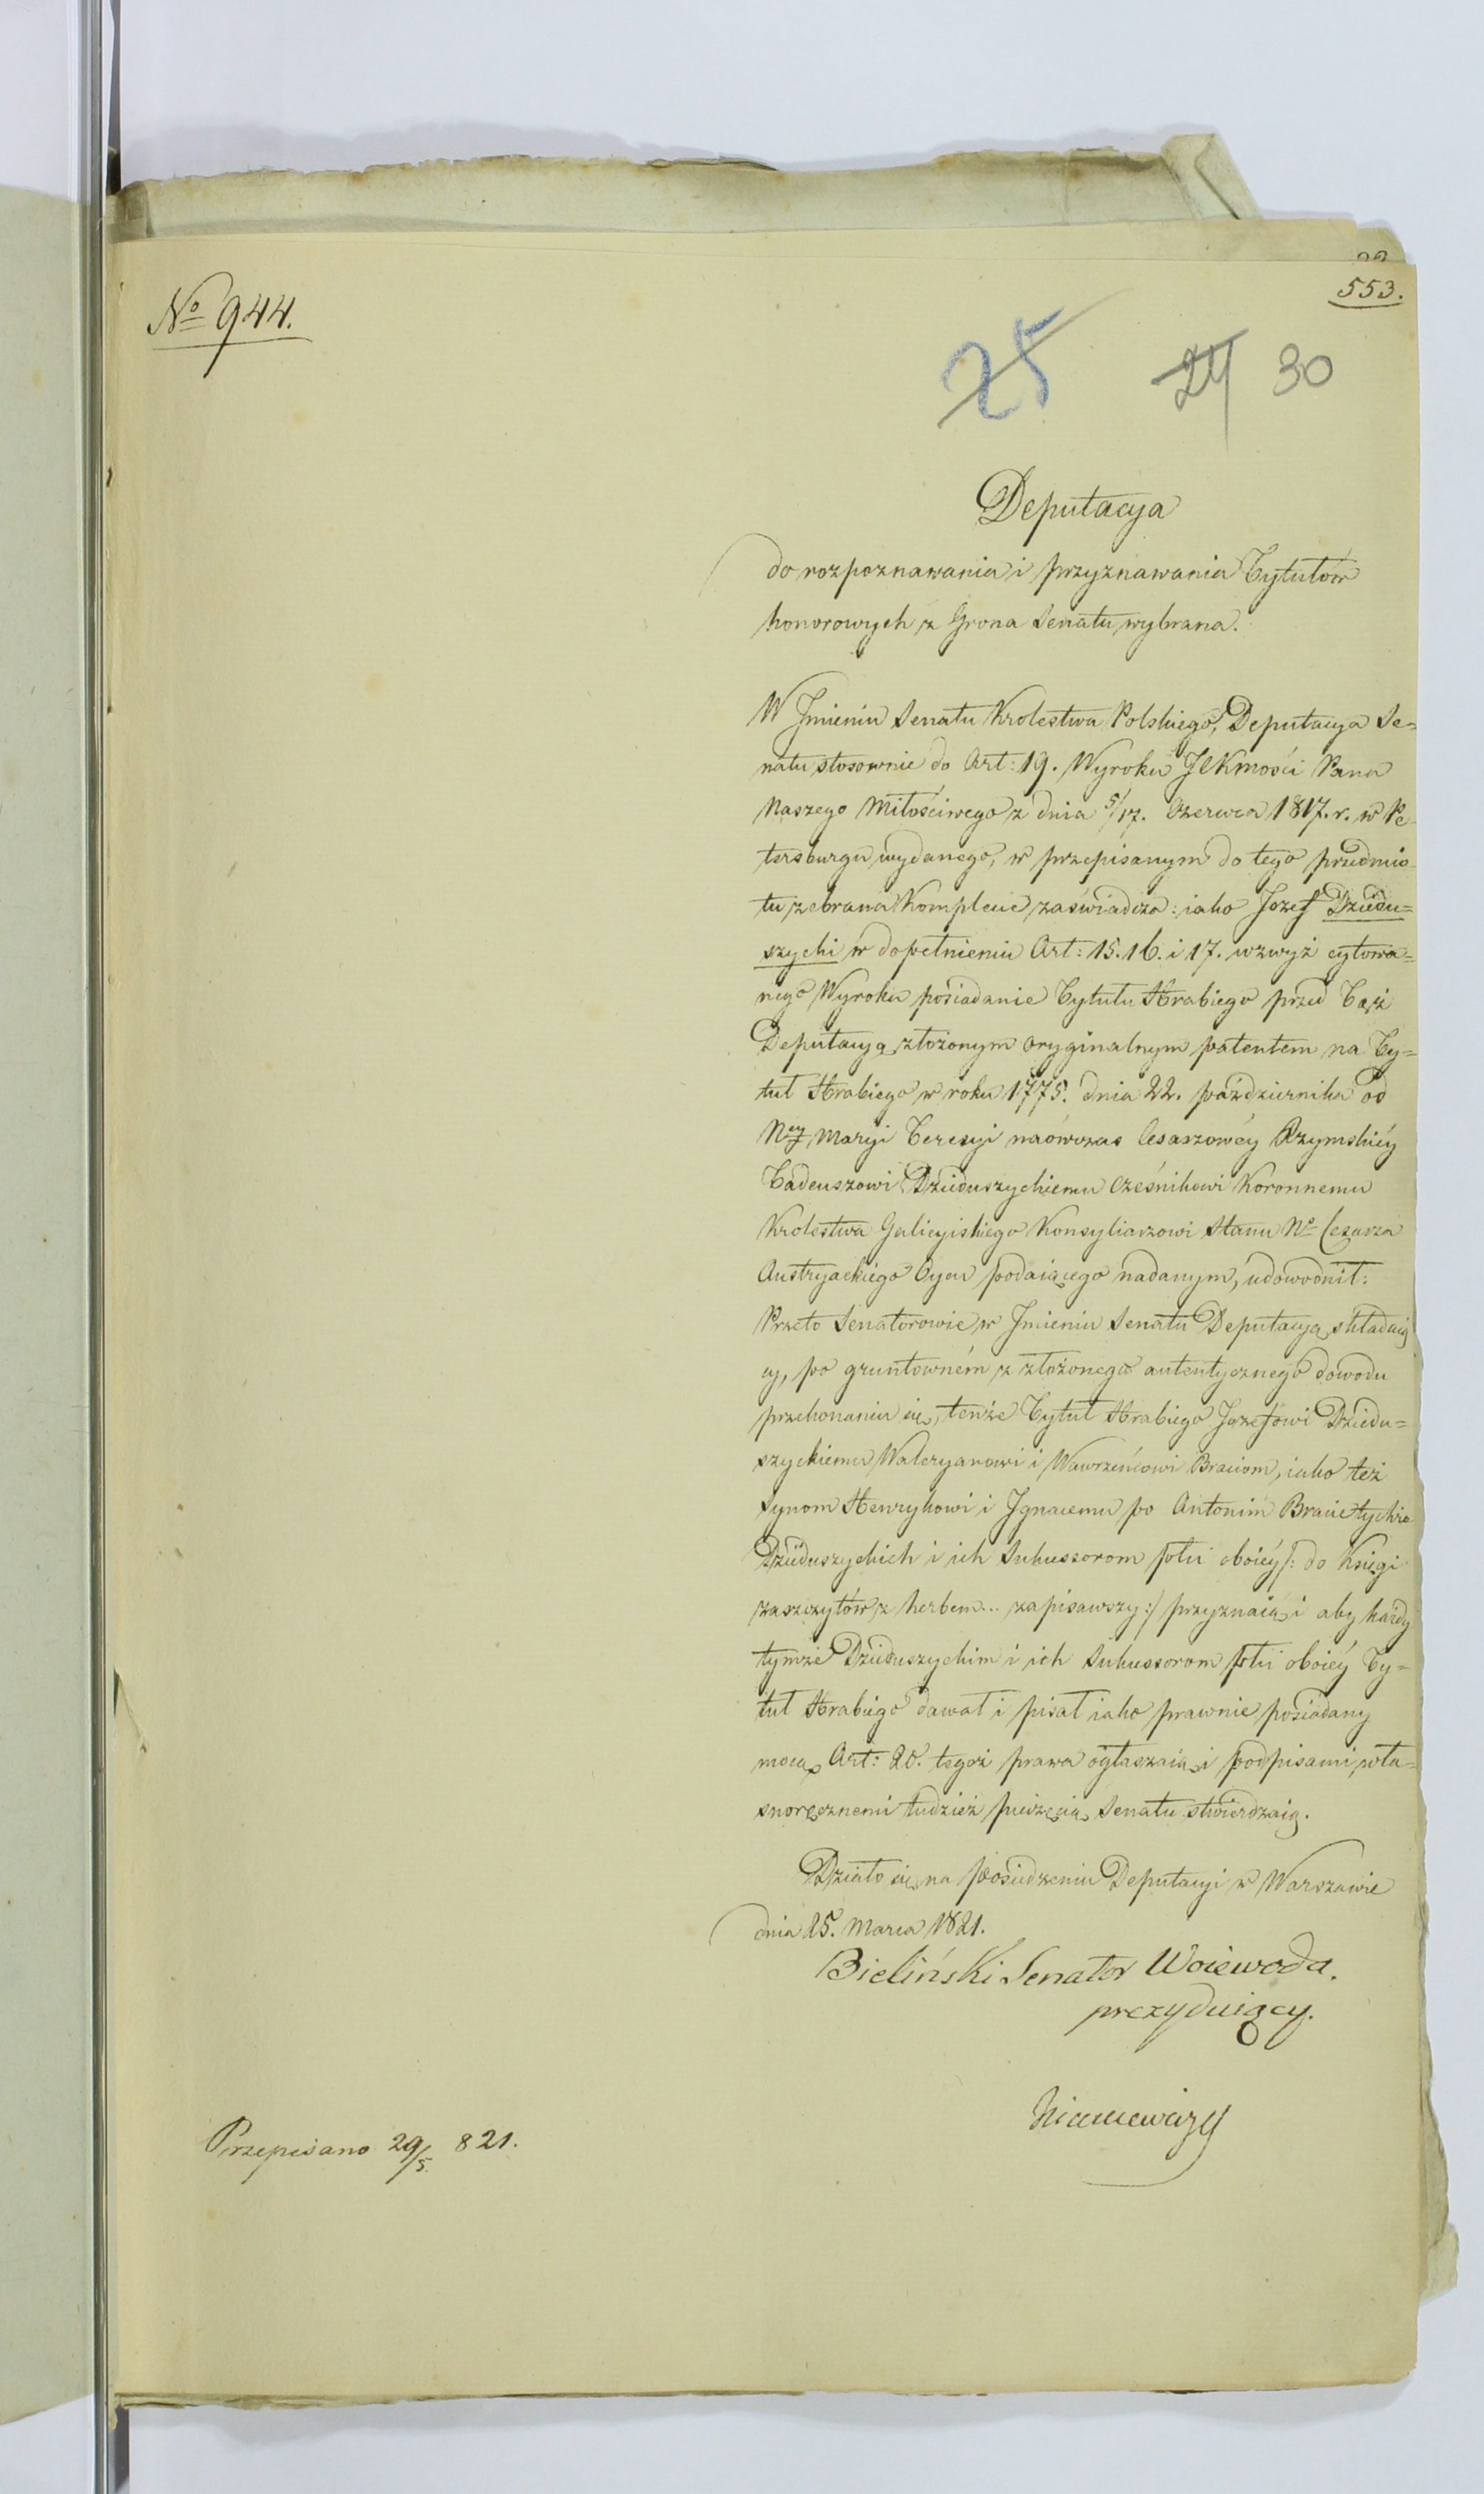 553.
No 944.
25 24 30
Deputacya
do rozpoznawania i przyznawania Tytułów
honorowych z Grona Senatu wybrana.
W Jmieniu Senatu Krolestwa Polskiego, Deputacya Se=
natu stosownie do Art: 19. Wyroku JCKmości Pana
Naszego Miłościwego z dnia 5/17. Czerwca 1817. r. w Pe
tersburgu wydanego, w przepisanym do tego przedmio
tu zebrana Komplecie zaświadcza: iako Jozef Dziedu=
szycki w dopełnieniu Art: 15. 16. i 17. wzwyż cytowa=
nego Wyroku posiadanie Tytułu Hrabiego przed Tąż
Deputacyą złożonym oryginalnym patentem na Ty=
tuł Hrabiego w roku 1775. dnia 22. października od
Ney Maryi Teresyi naówczas Cesarzowéy Rzymskiéy
Tadeuszowi Dzieduszyckiemu Cześnikowi Koronnemu
Krolestwa Galicyiskiego Konsyliarzowi Stanu No Cesarza
Austryackiego Oycu podaiącego nadanym, udowodnił:
Przeto Senatorowie w Jmieniu Senatu Deputacyą składaią
cy, po gruntowném z złożonego autentycznego dowodu
przekonaniu się, tenże Tytuł Hrabiego Jozefowi Dziedu=
szyckiemu Waleryanowi i Wawrzeńcowi Braciom, iako też
Synom Henrykowi i Jgnacemu po Antonim Bracie tychże
Dzieduszyckich i ich Sukcessorom płci oboiéy /: do Księgi
zaszczytów z herbem... zapisawszy :/ przyznaią i aby każdy
tymże Dzieduszyckim i ich Sukcessorom płci oboiéy Ty=
tuł Hrabiego dawał i pisał iako prawnie posiadany
mocą Art: 20. tegoż prawa ogłaszaią i podpisami wła=
snoręcznemi tudzież pieczęcią Senatu stwierdzaią.
Działo się na posiedzeniu Deputacyi w Warszawie
dnia 25. Marca 1821.
Bieliński Senator Woiewoda.
prezyduiący.
Niemcewicz
Przepisano 29/5 821.